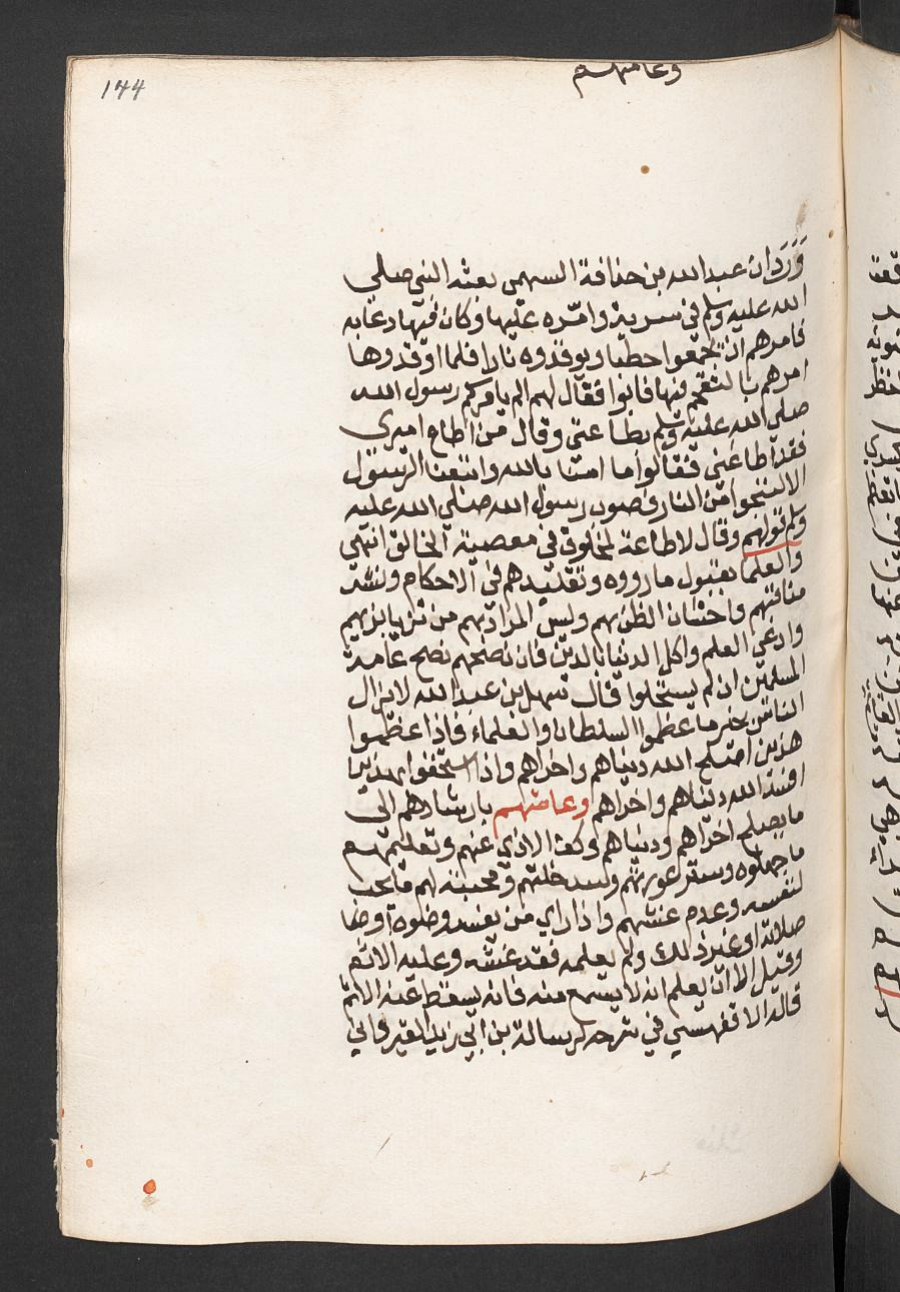 144
وعامتهم
وورد ان عبدالله بن حذافة السهمي بعثه النبي صلي
الله عليه وسلم في سرية وامره عليها وكان فيها دعابه
فامرهم ان يجمعوا حطبا ويوقدوه نارا فلما اوقدوها
امرهم بالتقحم فيها فابوا فقال لهم الم يامركم رسول الله
صلي الله عليه وسلم بطاعتي وقال من اطاع اميري
فقد اطاعني فقالوا ما امنا بالله واتبعنا الرسول
الا لننجوا من النار فصوب رسول الله صلي الله عليه
وسلم قولهم وقال لا طاعة لمخلوق في معصية الخالق انتهي
والعلما بقبول ما رووه وتقليدهم في الاحكام ونشر
مناقبهم واحسان الظن بهم وليس المراد بهم من تزيا بزيهم
وادعي العلم واكل الدنيا بالدين فان نصحهم نصح عامة
المسلمين ان لم يستحلوا قال سهل بن عبدالله لا يزال
الناس بخير ما عظموا السلطان والعلماء فاذا عظموا
هذين اصلح الله دنياهم واخراهم واذا استخفوا بهذين
افسد الله دنياهم واخراهم وعامتهم بارشادهم الي
ما يصلح اخراهم ودنياهم وكف الاذي عنهم وتعليمهم
ما جهلوه وستر عوراتهم وسد خلتهم ومحبته لهم ما يحب
لنفسه وعدم غشهم واذا راي من يفسد وضوه او
صلاته او غير ذلك ولم يعلمه فقد غشه وعليه الاثم
وقيل الا ان يعلم انه لا يسمع منه فانه يسقط عنه الاثم
قاله الاقفهسي في شرحه لرسالة بن ابي زيد القيرواني